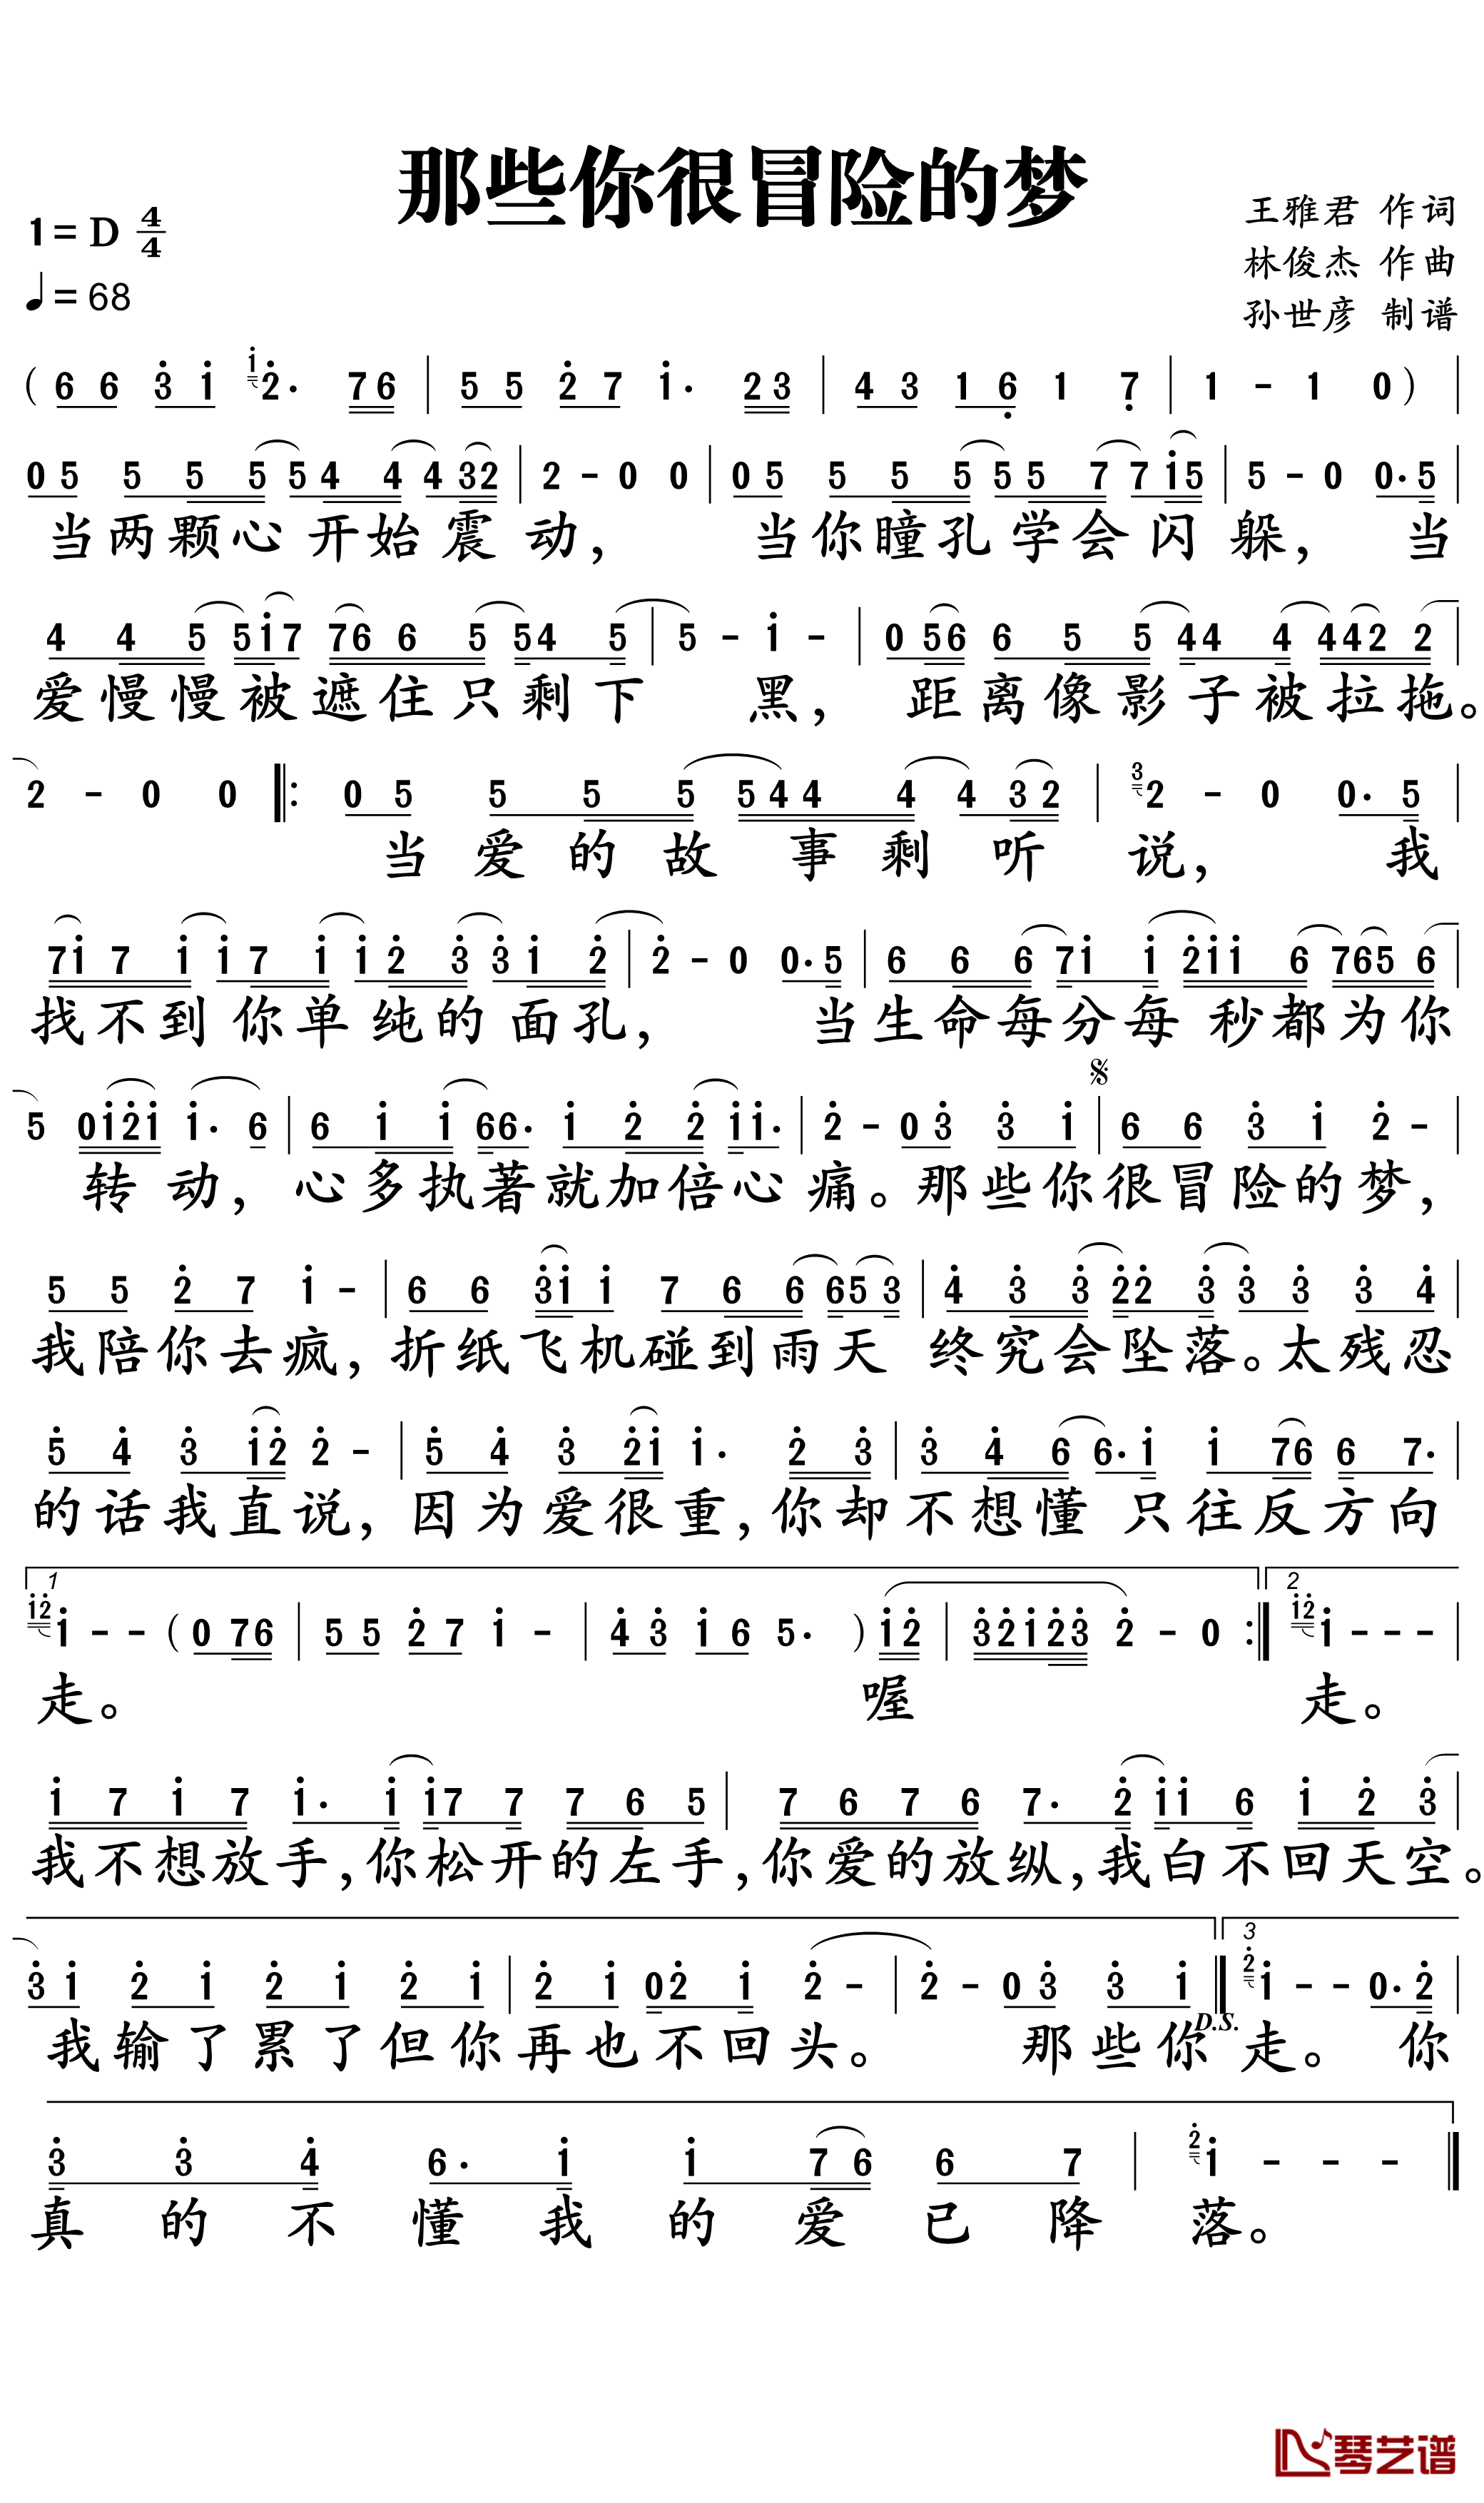 那些你很冒险的梦
1=D 4/4
♩=68
王雅君 作词
林俊杰 作曲
孙世彦 制谱
( 6 6 3̇ 1̇ 1̇2̇· 7 6 | 5 5 2̇ 7 1̇· 2 3 | 4 3 1 6̣ 1 7̣ | 1 - 1 0 ) |
0 5 5 5 5 5 4 4 4 3 2 | 2 - 0 0 | 0 5 5 5 5 5 5 7 7 1̇ 5 | 5 - 0 0· 5 |
当两颗心开始震动， 当你瞳孔学会闪躲， 当
4 4 5 5 1̇ 7 7 6 6 5 5 4 5 | 5 - 1̇ - | 0 5 6 6 5 5 4 4 4 4 4 2 2 |
爱慢慢被遮住只剩下 黑， 距离像影子被拉拖。
2 - 0 0 |: 0 5 5 5 5 5 4 4 4 4 3 2 | 3 2 - 0 0· 5 |
当爱的故事剩听说， 我
7 1̇ 7 1̇ 1̇ 7 1̇ 1̇ 2̇ 3̇ 3̇ 1̇ 2̇ | 2̇ - 0 0· 5 | 6 6 6 7 1̇ 1̇ 2̇ 1̇ 1̇ 6 7 6 5 6 |
找不到你单纯的面孔， 当生命每分每秒都为你
5 0 1̇ 2̇ 1̇ 1̇· 6 | 6 1̇ 1̇ 6 6· 1̇ 2̇ 2̇ 1̇ 1̇· | 2̇ - 0 3̇ 3̇ 1̇ | 6 6 3̇ 1̇ 2̇ - |
转动， 心多执著就加倍心痛。那些你很冒险的梦，
5 5 2̇ 7 1̇ - | 6 6 3̇ 1̇ 1̇ 7 6 6 6 5 3̇ | 4̇ 3̇ 3̇ 2̇ 2̇ 3̇ 3̇ 3̇ 3̇ 4̇ |
我陪你去疯，折纸飞机碰到雨天 终究会坠落。太残忍
5̇ 4̇ 3̇ 1̇ 2̇ 2̇ - | 5̇ 4̇ 3̇ 2̇ 1̇ 1̇· 2̇ 3̇ | 3̇ 4̇ 6 6· 1̇ 1̇ 7 6 6 7· |
的话我直说，因为爱很重，你却不想懂 只往反方向
1
1̇ 2̇ 1̇ - - ( 0 7 6 | 5 5 2̇ 7 1̇ - | 4̇ 3̇ 1̇ 6 5· ) 1̇ 2̇ | 3̇ 2̇ 1̇ 2̇ 3̇ 2̇ - 0 :| 2 1̇ 2̇ 1̇ - - - |
走。 喔 走。
1̇ 7 1̇ 7 1̇· 1̇ 1̇ 7 7 7 6 5 | 7 6 7 6 7· 2̇ 1̇ 1̇ 6 1̇ 2̇ 3̇ |
我不想放手，你松开的左手，你爱的放纵，我白不回天空。
3̇ 1̇ 2̇ 1̇ 2̇ 1̇ 2̇ 1̇ | 2̇ 1̇ 0 2̇ 1̇ 2̇ - | 2̇ - 0 3̇ 3̇ 1̇ | 3 2̇ 1̇ - - 0· 2̇ |
我输了累了但你再也不回头。 那些你 D.S. 走。 你
3̇ 3̇ 4̇ 6· 1̇ 1̇ 7 6 6 7 | 2̇ 1̇ - - - |
真的不懂我的爱已降落。
琴艺谱